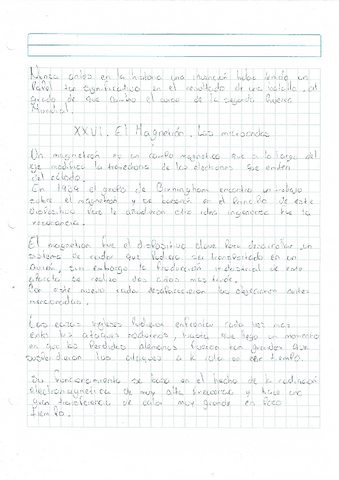 Nunca antes en la historia una invención había tenido un
papel tan significativo en el resultado de una batalla, al
grado de que cambio el curso de la segunda Guerra
Mundial.
XXVI. El Magnetrón. Las microondas
Un magnetrón es un campo magnético que a lo largo del
eje modifica la trayectoria de los electrones que emiten
del cátodo.
En 1939 el grupo de Birmingham encontro un trabajo
sobre el magnetrón y se basaron en el Principio de este
dispositivo pero le añadieron otra idea ingeniosa fue la
resonancia.
El magnetron fue el dispositivo clave para desarrollar un
sistema de radar que pudiera ser transportado en un
avión, sin embargo la producción industrial de este
aparato se realizó dos años mas tarde.
Por este nuevo radar desaparecieron las objeciones antes
mencionadas.
Los cazas ingleses pudieron enfrentar cada vez mas
exito los ataques nocturnos, hasta que llego un momento
en que las perdidas alemanas fueron tan grandes que
suspendieron los ataques a la isla en ese tiempo.
Su funcionamiento se basa en el hecho de la radiación
electromagnética de muy alta frecuencia y hace una
gran transferencia de calor muy grande en poco
tiempo.